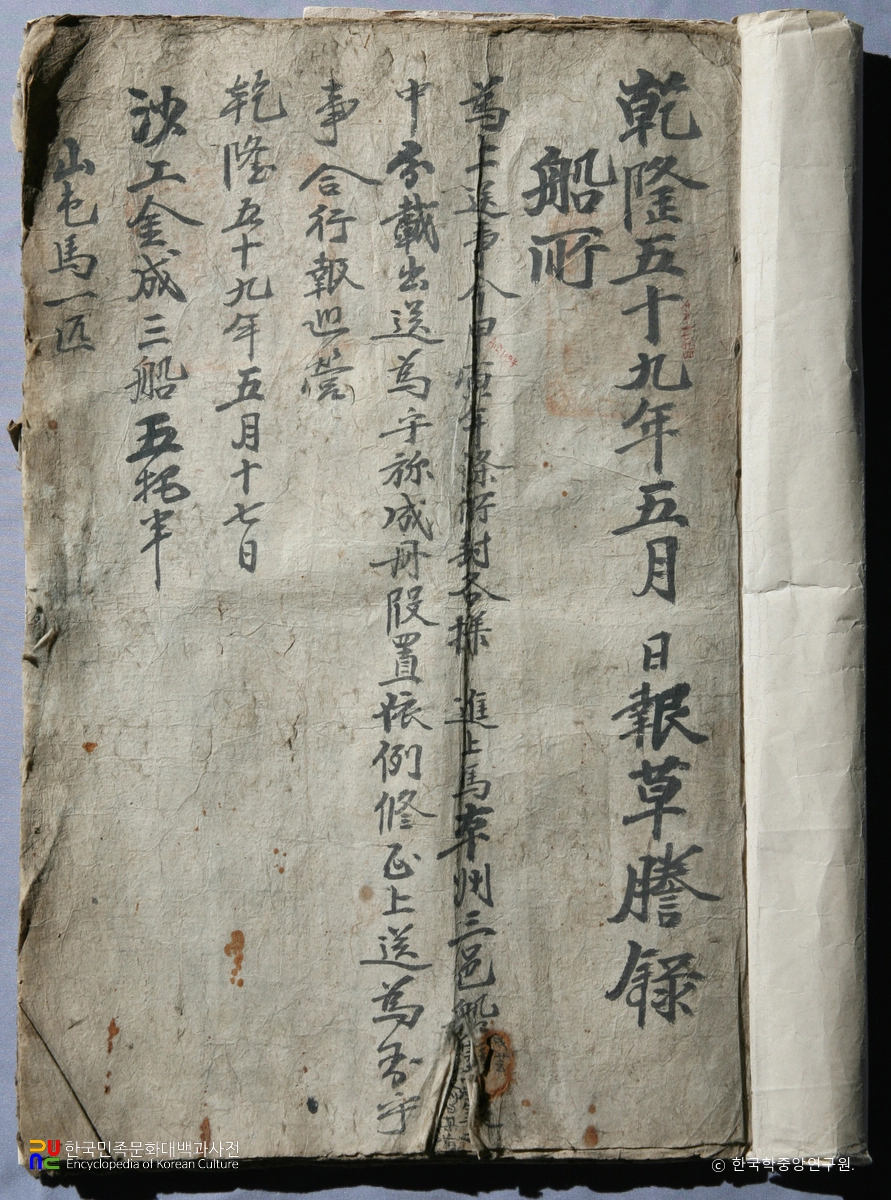 乾隆五十九年五月 日報草謄錄
船所
爲上送事今 條所封各樣 進上馬本州三邑船
中分載出送爲乎旀成冊段置依例修正上送爲 乎
事合行報巡營
乾隆五十九年五月十七日
沙工金成三船五把半
山屯馬一匹
한국민족문화대백과사전
Encyclopedia of Korean Culture
© 한국학중앙연구원.